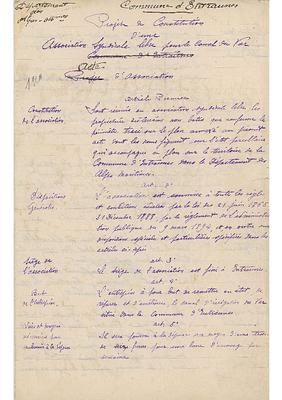 Département
des
Alpes-Maritimes
Commune d'Entraunes
Projet de Constitution
d'une
Association Syndicale libre pour le Canal du Var
Commune d'Entraunes
Acte
Projet d'Association
Article Premier
Constitution
de l'association
Sont réunis en association syndicale libre les
propriétaires
compris dans le
périmètre tracé sur le plan annexé au présent
acte dont les noms figurent sur l'état parcellaire
qui accompagne ce plan sur le territoire de la
Commune d'Entraunes dans le Département des
Alpes Maritimes.
art. 2°
Dispositions
Générales
L'association est soumise à toutes les règles
et conditions édictées par la loi des 21 juin 1865
22 Décembre 1888 par le règlement de l'administration
publique du 9 mars 1894, et en outre aux
dispositions spéciales et particulières spécifiées dans les
articles ci-après
art. 3°
Siège de
l'association
Le siège de l'association est fixé à Entraunes
art. 4°
But
de l'entreprise
L'entreprise a pour but de remettre en état, de
réparer et d'améliorer le canal d'irrigation du Var
situé dans la Commune d'Entraunes.
art. 5°
Voies et moyens
nécessaires pour
subvenir à la dépense
Il sera pourvu à la dépense au moyen d'une
pour une heure d'arrosage par
semaine.